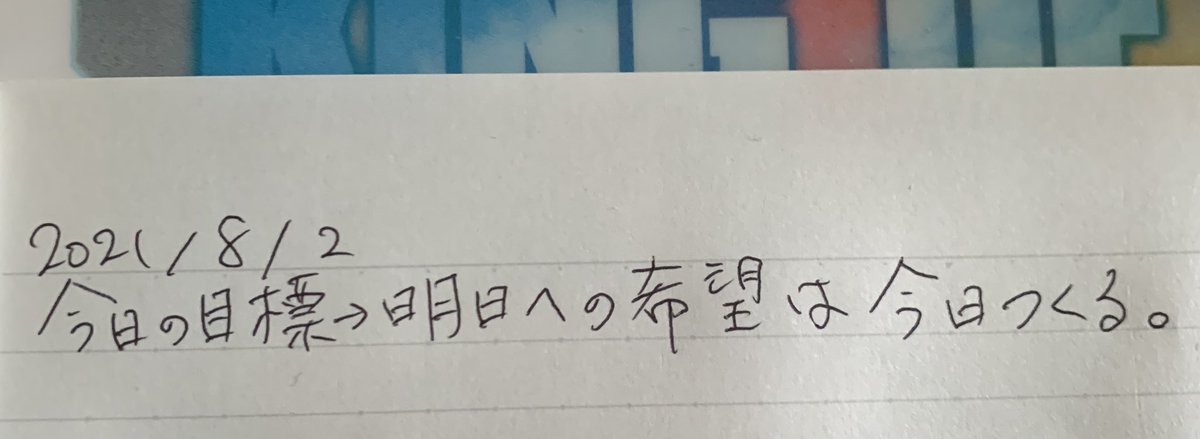 KING
2021/8/2
今日の目標→明日への希望は今日つくる。